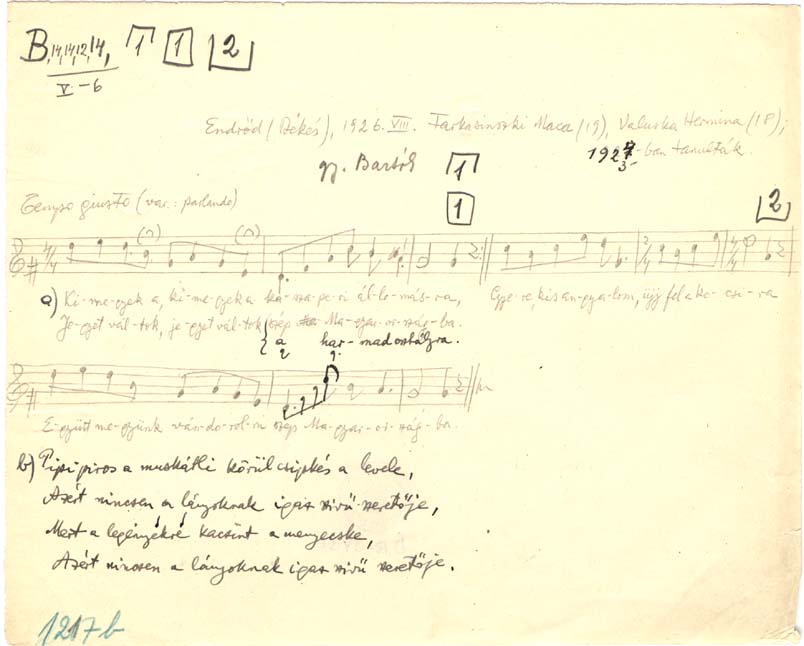 B,14,14,12,14, 1 1 2
V-6
Endrőd (Békés), 1926. VIII. Farkasinszki Maca (19), Valuska Hermina (18);
gy. Bartók 1 192 -ban tanulták.
1 2
Tempo giusto (var.: parlando)
a) Ki-me-gyek a, ki-me-gyek a ka-sza-pe-ri ál-lo-más-ra, Gye-re, kis an-gya-lom, üjj fel a ko-csi-ra
Je-gyet vál-tok, je-gyet vál-tok szép Ma-gyar-or-szág-ba.
a har-mad osztályra.
E-gyütt me-gyünk ván-do-rol-ni szép Ma-gyar-or-szág-ba.
b) Pipi piros a muskátli körül csipkés a levele,
Azért nincsen a lányoknak igaz szivü szeretője,
Mert a legényékré kacsint a menyecske,
Azért nincsen a lányoknak igaz szivü szeretője.
1217b